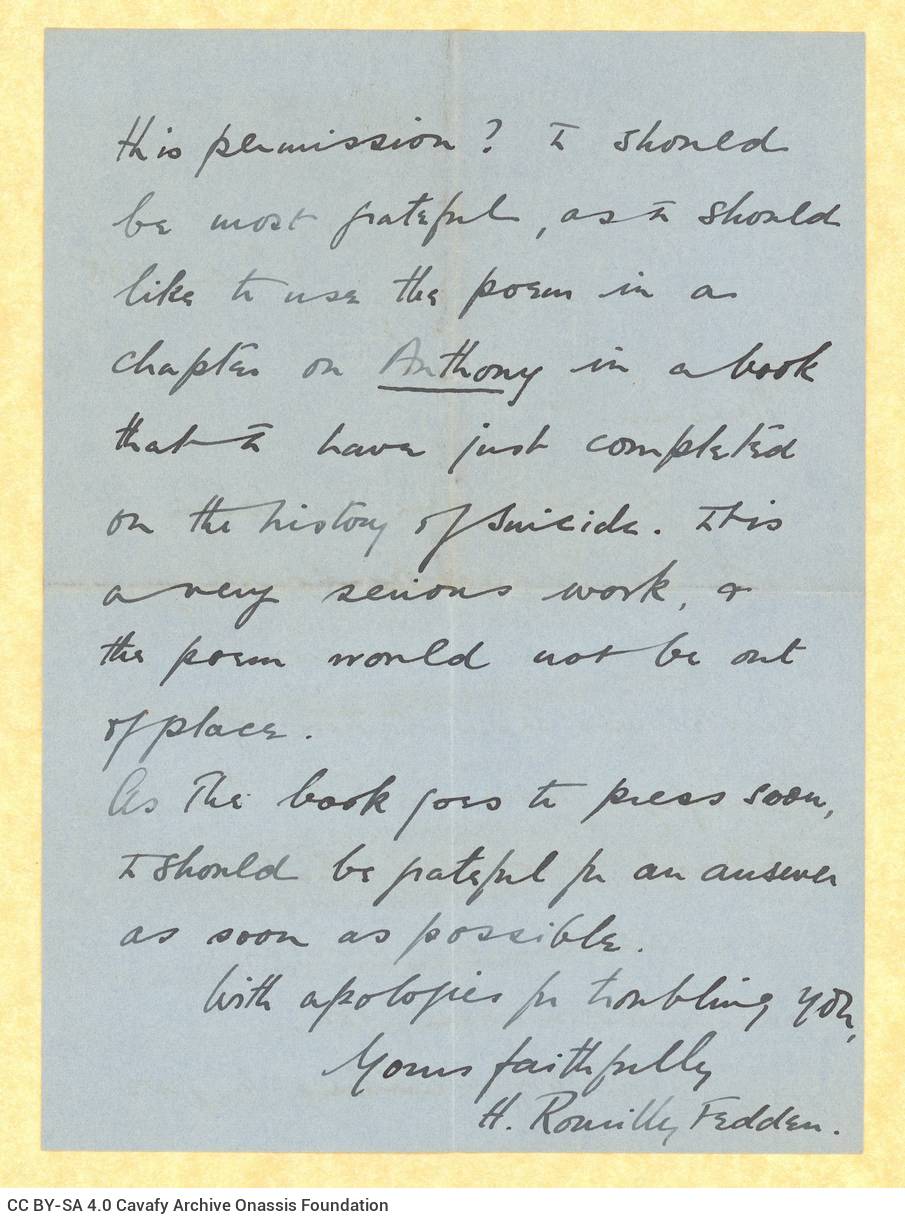 this permission? I should
be most grateful, as I should
like to use the poem in a
chapter on Anthony in a book
that I have just completed
on the history of suicide. It is
a very serious work, &
the poem would not be out
of place.
As the book goes to press soon,
I should be grateful for an answer
as soon as possible.
With apologies for troubling you,
Yours faithfully
H. Romilly Fedden.
CC BY-SA 4.0 Cavafy Archive Onassis Foundation